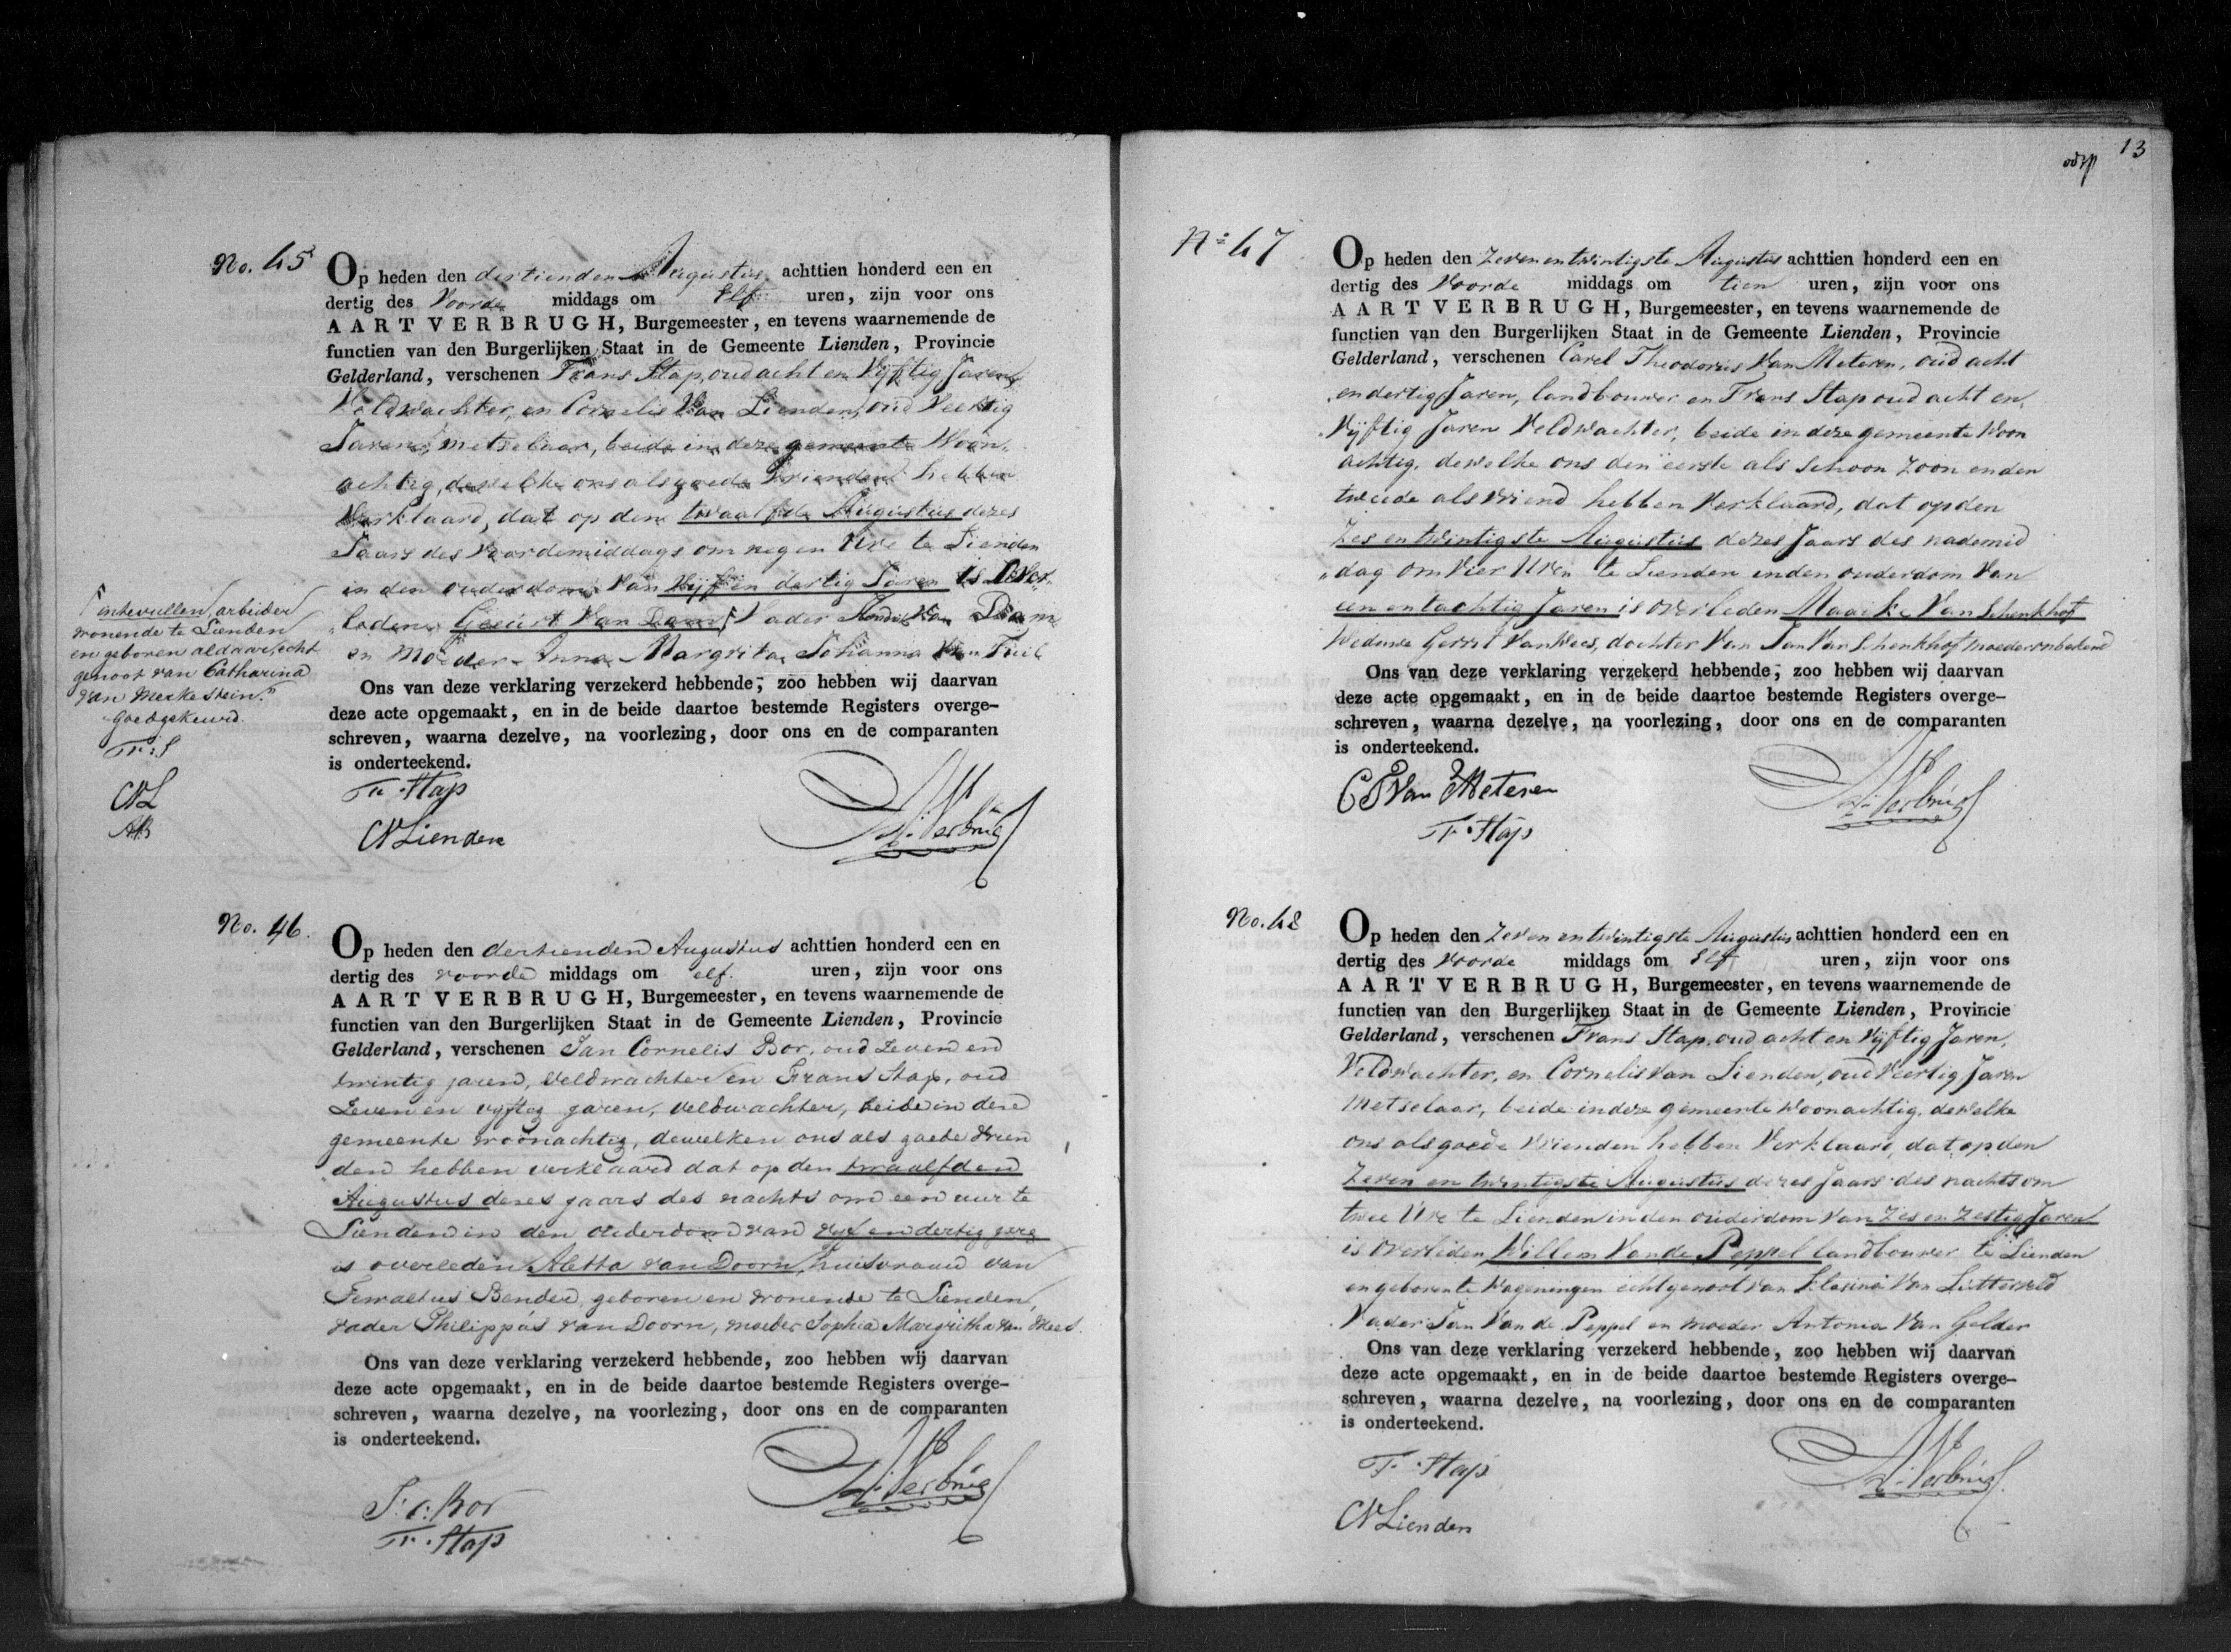 No. 45
Op heden den dertienden Augustus achttien honderd een en
dertig des Voorde middags om Elf uren, zijn voor ons
AART VERBRUGH, Burgemeester, en tevens waarnemende de
functien van den Burgerlijken Staat in de Gemeente Lienden, Provincie
Gelderland, verschenen Frans Stap, oud acht en Vijftig Jaren,
Veldwachter, en Cornelis Van Lienden, oud Veertig
Jaren, metselaar, beide in deze gemeente Woon„
achtig, dewelke ons als goede Vrienden hebben
Verklaard, dat op den twaalfde Augustus dezes
Jaars des Voordemiddags om negen Ure te Lienden
in den ouderdom Van Vijf en dertig Jaren is Over„
„leden Geurt Van Dam, Vader Van Dam
en Moeder Anna Margrita Johanna Van Tuil
Ons van deze verklaring verzekerd hebbende, zoo hebben wij daarvan
deze acte opgemaakt, en in de beide daartoe bestemde Registers overge-
schreven, waarna dezelve, na voorlezing, door ons en de comparanten
is onderteekend.
Fr. Stap
CV Lienden
A. Verbrug
intevullen, arbeider
wonende te Lienden
en geboren aldaar, echt
genoot van Catharina
van Merkestein."
goedgekeurd.
Fr: S
CVL
AB
No. 46.
Op heden den dertienden Augustus achttien honderd een en
dertig des voorde middags om elf. uren, zijn voor ons
AART VERBRUGH, Burgemeester, en tevens waarnemende de
functien van den Burgerlijken Staat in de Gemeente Lienden, Provincie
Gelderland, verschenen Jan Cornelis Bor, oud zeven en
twintig jaren, Veldwachter en Frans Stap, oud
Zeven en vyftig jaren, veldwachter, beide in deze
gemeente woonachtig, dewelken ons als goede vrien
„den hebben verklaard dat op den twaalfden
Augustus dezes jaars des nachts om een uur te
Lienden in den ouderdom van vyf en dertig jare
is overleden Aletta van Doorn, huisvrouw van
Bender, geboren en wonende te Lienden,
vader Philippus van Doorn, moeder Sophia Margritha van Mees.
Ons van deze verklaring verzekerd hebbende, zoo hebben wij daarvan
deze acte opgemaakt, en in de beide daartoe bestemde Registers overge-
schreven, waarna dezelve, na voorlezing, door ons en de comparanten
is onderteekend.
J: C: Bor
Fr. Stap
A. Verbrug
13
No 47
Op heden den Zeven en twintigste Augustus achttien honderd een en
dertig des Voorde middags om tien uren, zijn voor ons
AART VERBRUGH, Burgemeester, en tevens waarnemende de
functien van den Burgerlijken Staat in de Gemeente Lienden, Provincie
Gelderland, verschenen Carel Theodorus Van Meteren, oud acht
en dertig Jaren, landbouwer en Frans Stap oud acht en
Vijftig Jaren Veldwachter, beide in deze gemeente Woon
achtig, dewelke ons den eerste als Schoon Zoon en den
tweede als Vriend hebben Verklaard, dat op den
Zes en twintigste Augustus dezes Jaars des nademid
„dag om Vier Uren te Lienden in den ouderdom Van
een en tachtig Jaren is Overleden Maaike Van Schenkhof
Weduwe Gerrit Van Wees, dochter Van Jan Van Schenkhof moeder onbekend
Ons van deze verklaring verzekerd hebbende, zoo hebben wij daarvan
deze acte opgemaakt, en in de beide daartoe bestemde Registers overge-
schreven, waarna dezelve, na voorlezing, door ons en de comparanten
is onderteekend.
C T Van Meteren
Fr. Stap
A. Verbrug
No. 48
Op heden den Zeven en twintigste Augustus achttien honderd een en
dertig des Voorde middags om Elf uren, zijn voor ons
AART VERBRUGH, Burgemeester, en tevens waarnemende de
functien van den Burgerlijken Staat in de Gemeente Lienden, Provincie
Gelderland, verschenen Frans Stap, oud acht en Vijftig Jaren,
Veldwachter, en Cornelis Van Lienden, oud Veertig Jaren
Metselaar, beide in deze gemeente Woonachtig, dewelke
ons als goede Vrienden hebben Verklaard, dat op den
Zeven en twintigste Augustus dezes Jaars des nachts om
twee Ure te Lienden in den ouderdom Van Zes en Zestig Jaren
is Overleden Willem Van de Peppel landbouwer te Lienden
en geboren te Wageningen echtgenoot van Klasina Van
Vader Jan Van de Peppel en Moeder Antonia Van Gelder
Ons van deze verklaring verzekerd hebbende, zoo hebben wij daarvan
deze acte opgemaakt, en in de beide daartoe bestemde Registers overge-
schreven, waarna dezelve, na voorlezing, door ons en de comparanten
is onderteekend.
Fr. Stap
CV Lienden
A. Verbrug